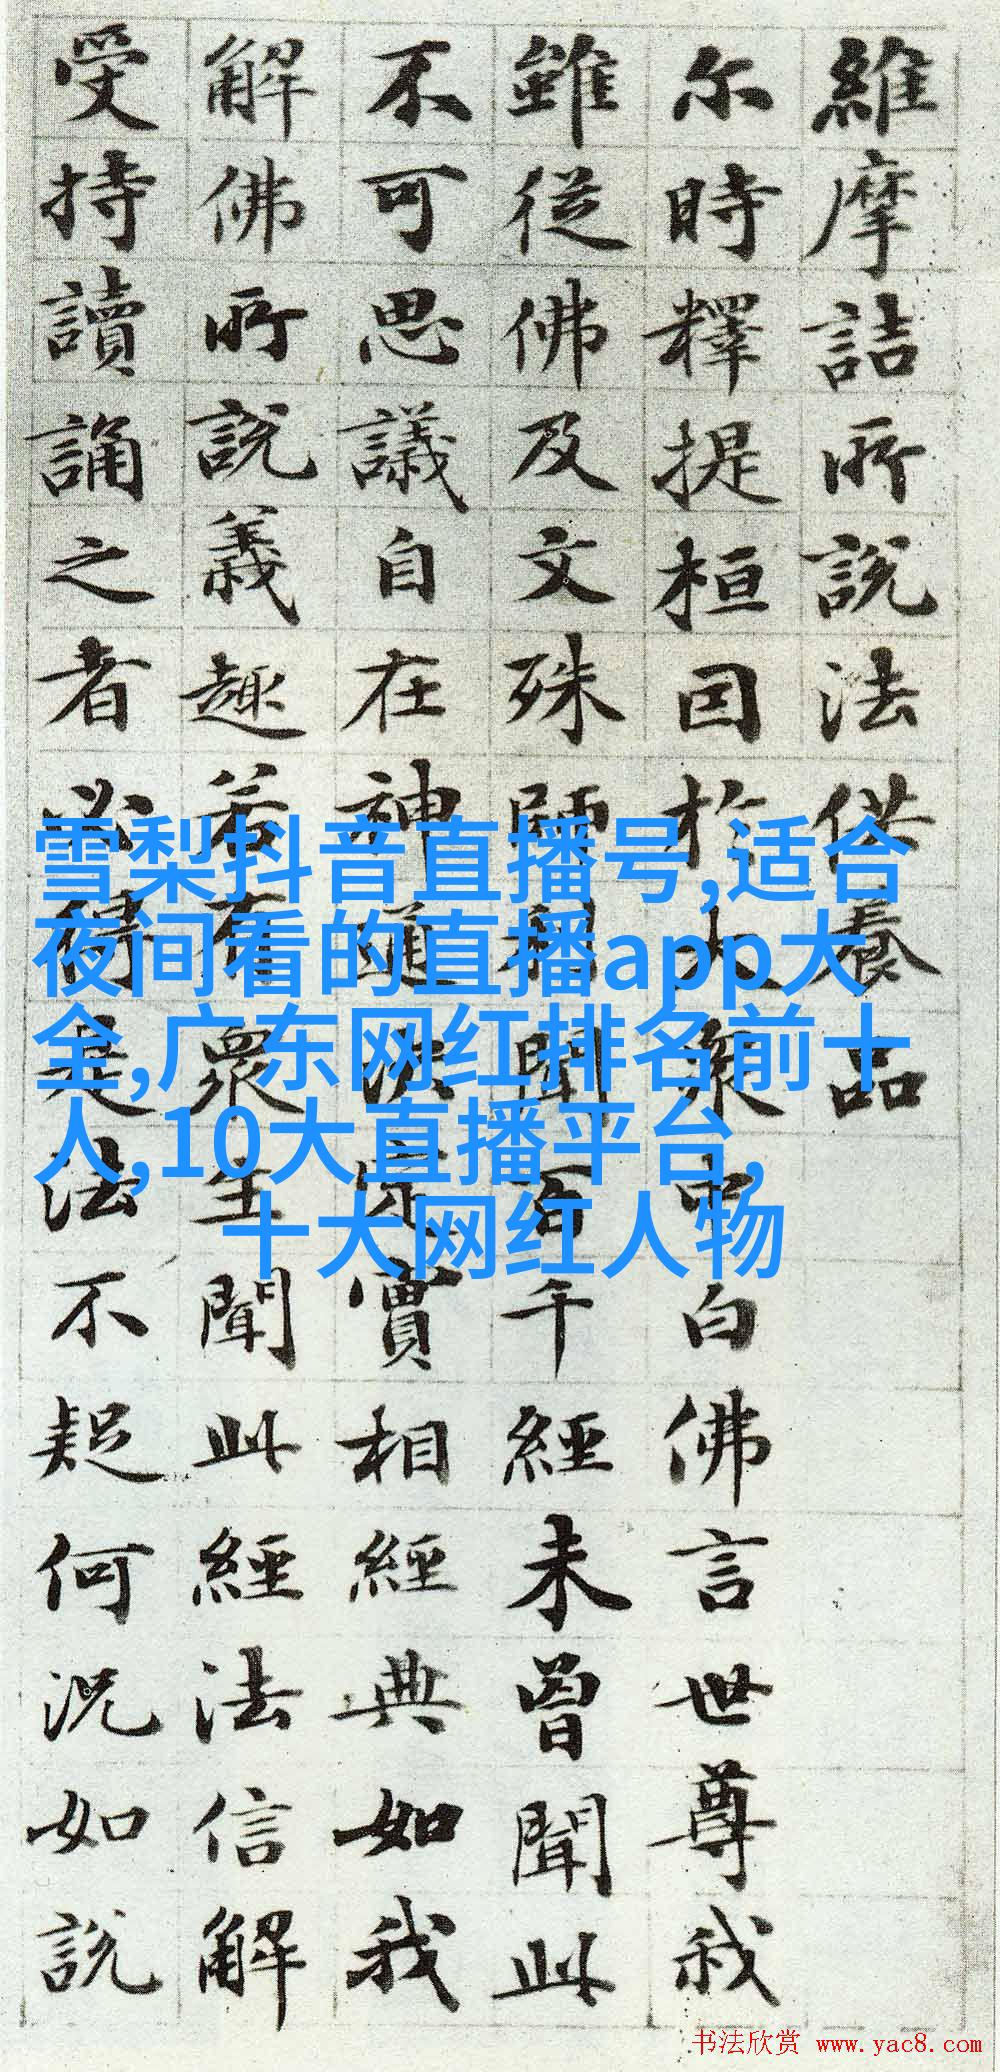 維摩詰所說法供養品
尔時釋提桓因於大眾中白佛言世尊我
雖從佛及文殊師利聞百千經未曾聞此
不可思議自在神通決定實相經典如我
解佛所說義趣若有眾生聞此經法信解
受持讀誦之者必得是法不疑何況如說
雪梨抖音直播号,适合
夜间看的直播app大
全,广东网红排名前十
人,10大直播平台,
十大网红人物
书法欣赏 www.yac8.com